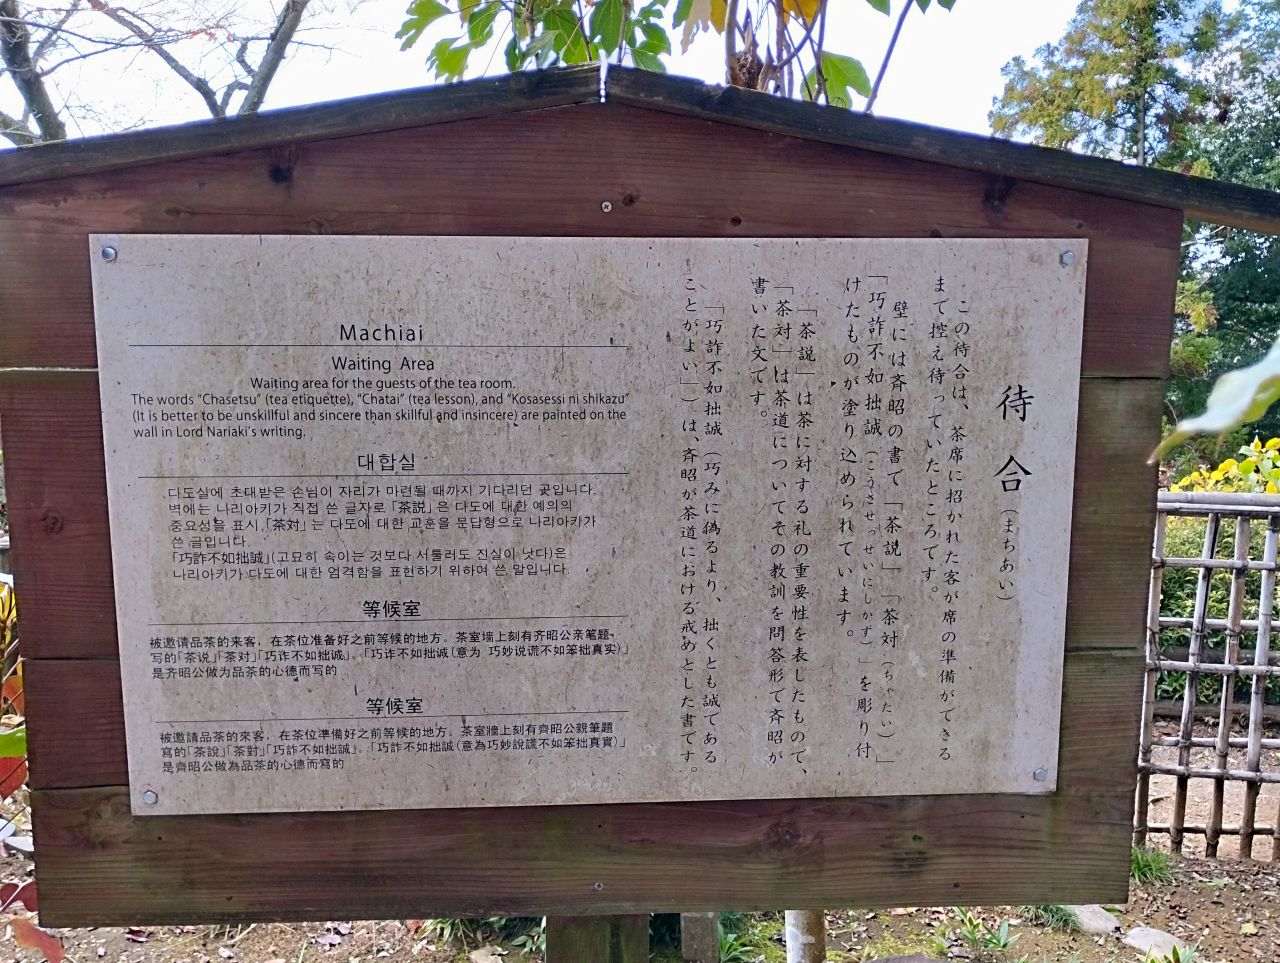 待合（まちあい）
この待合は、茶席に招かれた客が席の準備ができる
まで控え待っていたところです。
壁には斉昭の書で「茶説」「茶対（ちゃたい）」
「巧詐不如拙誠（こうさせっせいにしかず）」を彫り付
けたものが塗り込められています。
「茶説」は茶に対する礼の重要性を表したもので、
「茶対」は茶道についてその教訓を問答形で斉昭が
書いた文です。
「巧詐不如拙誠（巧みに偽るより、拙くとも誠である
ことがよい」）は、斉昭が茶道における戒めとした書です。
Machiai
Waiting Area
Waiting area for the guests of the tea room.
The words "Chasetsu" (tea etiquette), "Chatai" (tea lesson), and "Kosasessi ni shikazu"
(It is better to be unskillful and sincere than skillful and insincere) are painted on the
wall in Lord Nariaki's writing.
대합실
다도실에 초대받은 손님이 자리가 마련될 때까지 기다리던 곳입니다.
벽에는 나리아키가 직접 쓴 글자로「茶説」은 다도에 대한 예의의
중요성을 표시,「茶対」는 다도에 대한 교훈을 문답형으로 나리아키가
쓴 글입니다.
「巧詐不如拙誠」(고묘히 속이는 것보다 서툴러도 진실이 낫다)은
나리아키가 다도에 대한 엄격함을 표현하기 위하여 쓴 말입니다.
等候室
被邀请品茶的来客，在茶位准备好之前等候的地方。茶室墙上刻有齐昭公亲笔题、
写的「茶说」「茶对」「巧诈不如拙诚」。「巧诈不如拙诚(意为 巧妙说谎不如笨拙真实)」
是齐昭公做为品茶的心德而写的
等候室
被邀請品茶的來客，在茶位準備好之前等候的地方。茶室牆上刻有齊昭公親筆題
寫的「茶說」「茶對」「巧詐不如拙誠」。「巧詐不如拙誠(意為巧妙說謊不如笨拙真實)」
是齊昭公做為品茶的心德而寫的